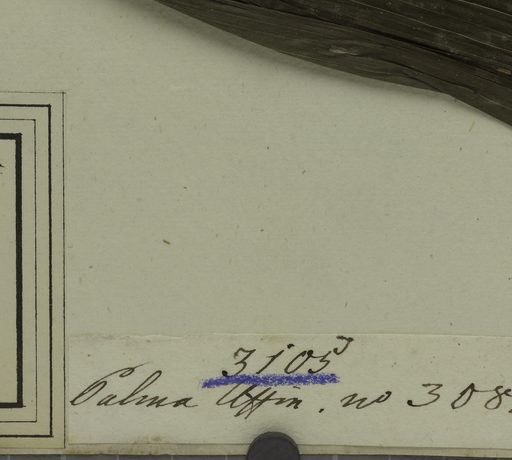 3105
Palma Affin. no 308